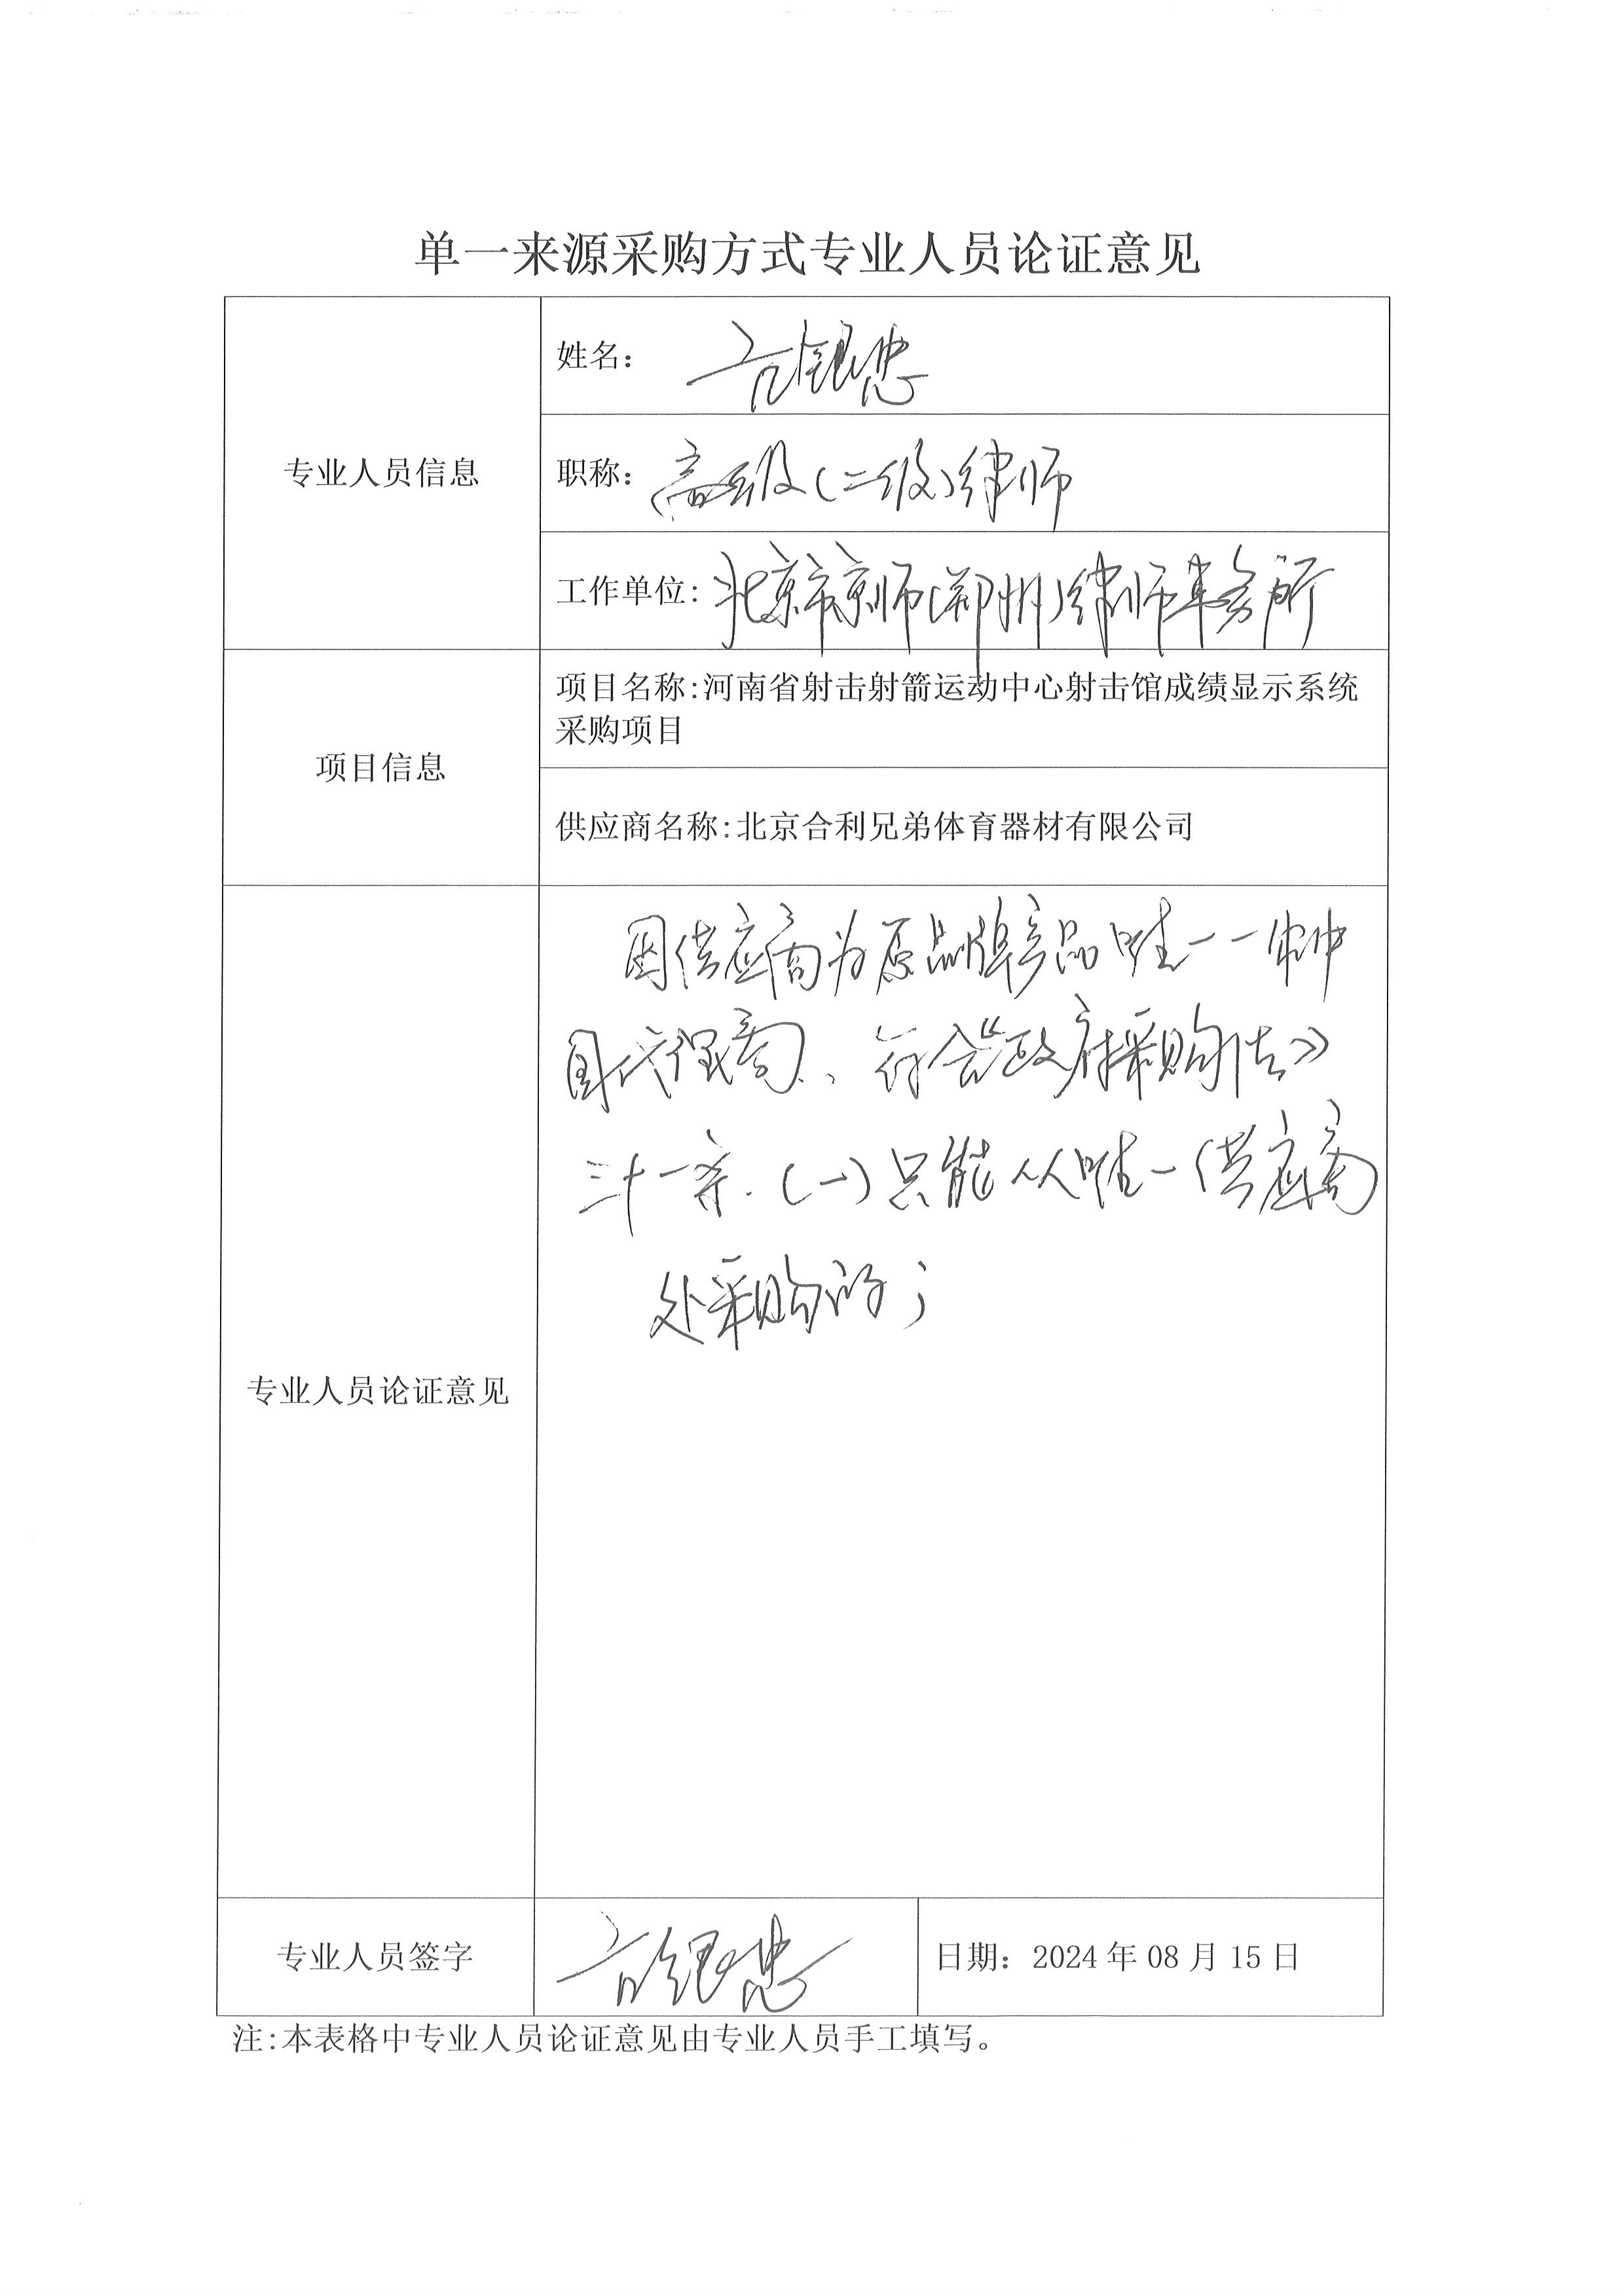 单一来源采购方式专业人员论证意见
专业人员信息
姓名：
银忠
职称：高级(二级)律师
工作单位：北京市京师(郑州)律师事务所
项目信息
项目名称:河南省射击射箭运动中心射击馆成绩显示系统
采购项目
供应商名称:北京合利兄弟体育器材有限公司
专业人员论证意见
因供应商为原品牌产品唯一一家中
国代理商、符合《政府采购法》
三十一条.(一)只能从唯一供应商
处采购的；
专业人员签字
银忠
日期：2024年08月15日
注:本表格中专业人员论证意见由专业人员手工填写。